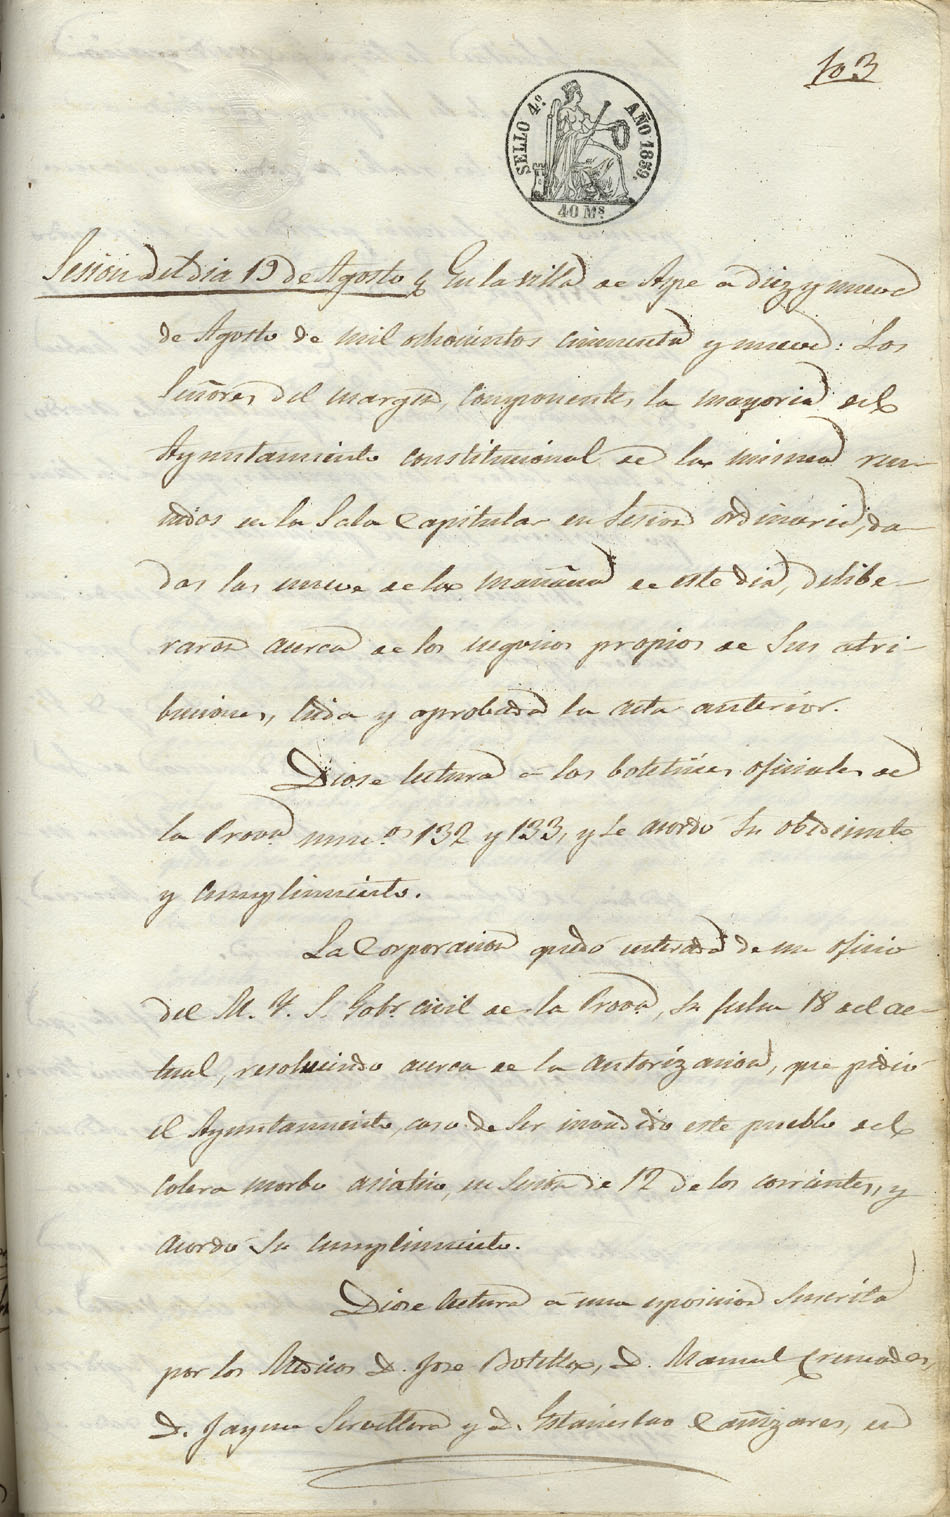 103
SELLO 4.º AÑO 1859.
40 Ms
Sesion del dia 19 de Agosto En la villa de Aspe a diez y nueve
de Agosto de mil ochocientos cincuenta y nueve: Los
Señores del margen, componentes la mayoria del
Ayuntamiento constitucional de la misma reu-
nidos en la Sala Capitular en Sesion ordinaria, da-
das las nueve de la mañana de este dia, delibe-
raron acerca de los negocios propios de sus atri-
buciones, leida y aprobada la acta anterior.
Diose lectura a los boletines oficiales de
la Prova numos 132 y 133, y se acordó su obedecimto
y cumplimiento.
La Corporacion quedó enterada de un oficio
del M. Y. S. Gobr. civil de la Prova, su fecha 18 del ac-
tual, resolviendo acerca de la autorizacion, que pidió
el Ayuntamiento, caso de ser invadido este pueblo del
colera morbo asiatico, en Sesion de 12 de los corrientes, y
acordó su cumplimiento.
Diose lectura a una esposicion suscrita
por los Medicos D. Jose Botella, D. Manuel Cremades,
D. Jayme Servellera y D. Estanislao Cañizares, en